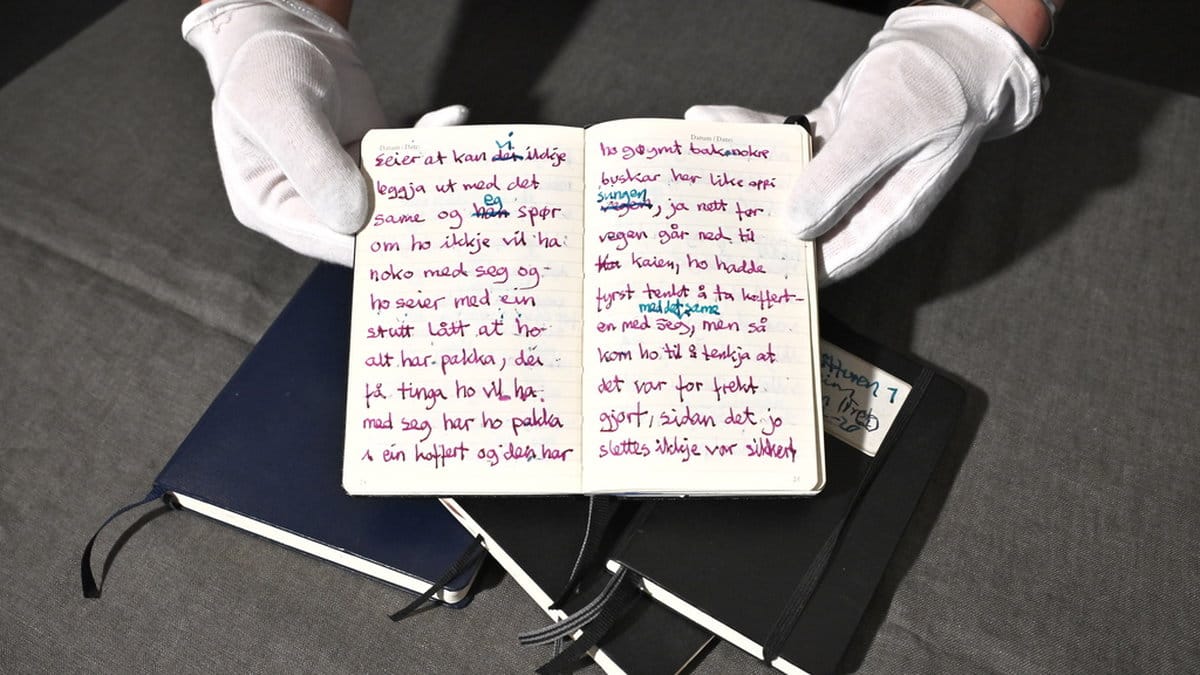 Datum/Date
vi
seier at kan det ikkje
leggja ut med det
eg
same og han spør
om ho ikkje vil ha
noko med seg og
ho seier med ein
stutt lått at ho
alt har pakka, dei
få tinga ho vil ha
med seg har ho pakka
i ein koffert og den har
24
Datum/Date
ho gøymt bak nokre
buskar her like oppi
svingen
vegen, ja rett før
vegen går ned til
kaien, ho hadde
fyrst tenkt å ta koffert-
med det same
en med seg, men så
kom ho til å tenkja at
det var for frekt
gjort, sidan det jo
slettes ikkje var sikkert
25